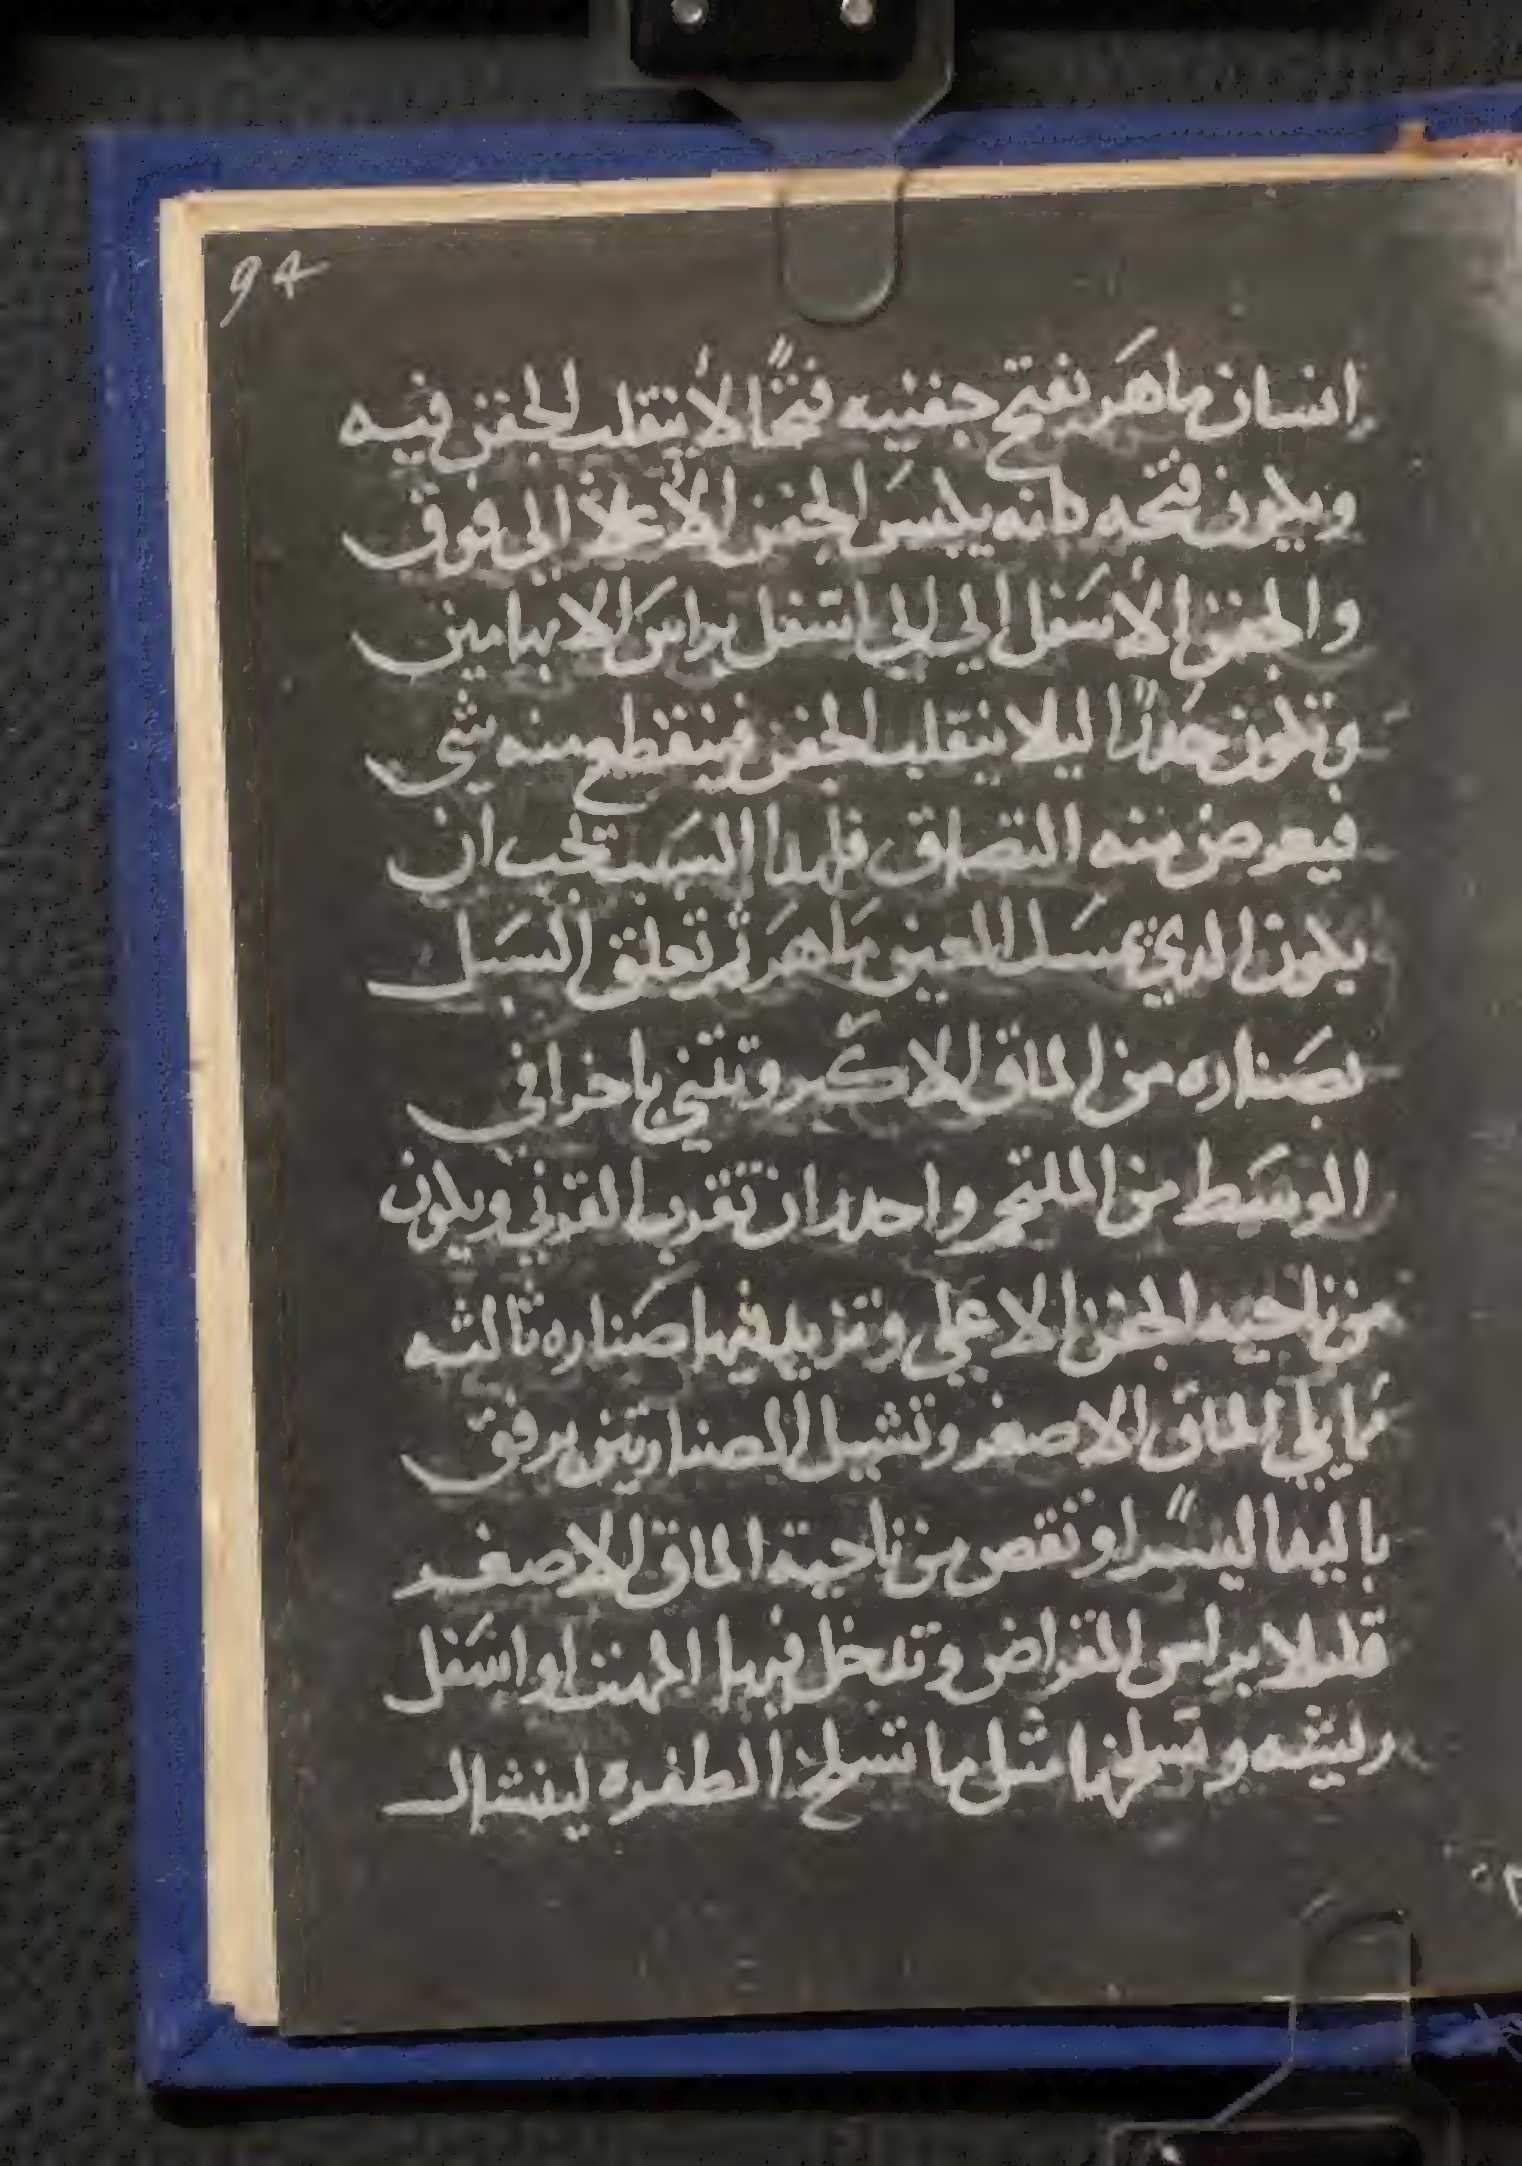 94
إنسان ماهر يفتح جفنيه فتحًا لا ينقلب الجفن فيه
ويكون فتحه كانه يكبس الجفن الأعلا الي فوق
والجفن الأسفل الي الي اسفل براس الابهامين
وتكون حذرًا ليلا ينقلب الجفن فينقطع منه شي
فيعرض منه التصاق فلهذا السبب تجب ان
يكون الذي يمسك العين ماهر ثم تعلق السبل
بصناره من الماق الاكبر وتثني باخرا في
الوسط من الملتحم واحدر ان تقرب القرني ويكون
من ناحيه الجفن الاعلي وتزيد فيها صناره ثالثه
مما يلي الماق الاصغر وتشيل الصنارتين برفق
باليها ليسرًا وتقص من ناحية الماق الاصغر
قليلا براس المقراض وتدخل فيها المهت او اسفل
ريشه وتسلخها مثل ما تسلخ الظفره لينشال